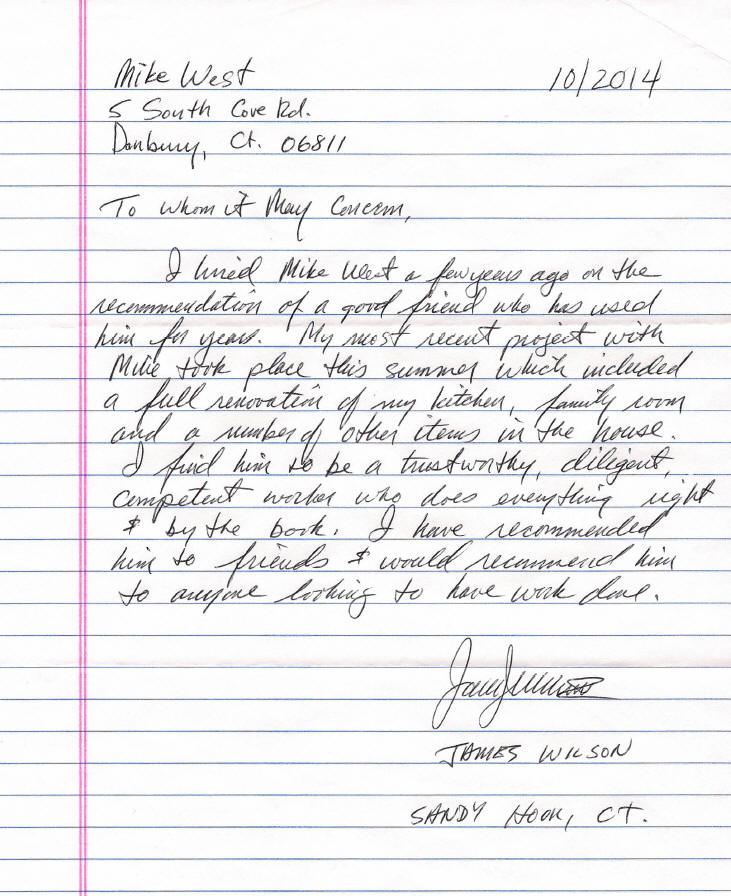 Mike West 10/2014
5 South Cove Rd.
Danbury, Ct. 06811
To whom it May Concern,
I hired Mike West a few years ago on the
recommendation of a good friend who has used
him for years. My most recent project with
Mike took place this summer which included
a full renovation of my kitchen, family room
and a number of other items in the house.
I find him to be a trustworthy, diligent,
competent worker who does everything right
& by the book. I have recommended
him to friends & would recommend him
to anyone looking to have work done.
JAMES WILSON
SANDY HOOK, CT.